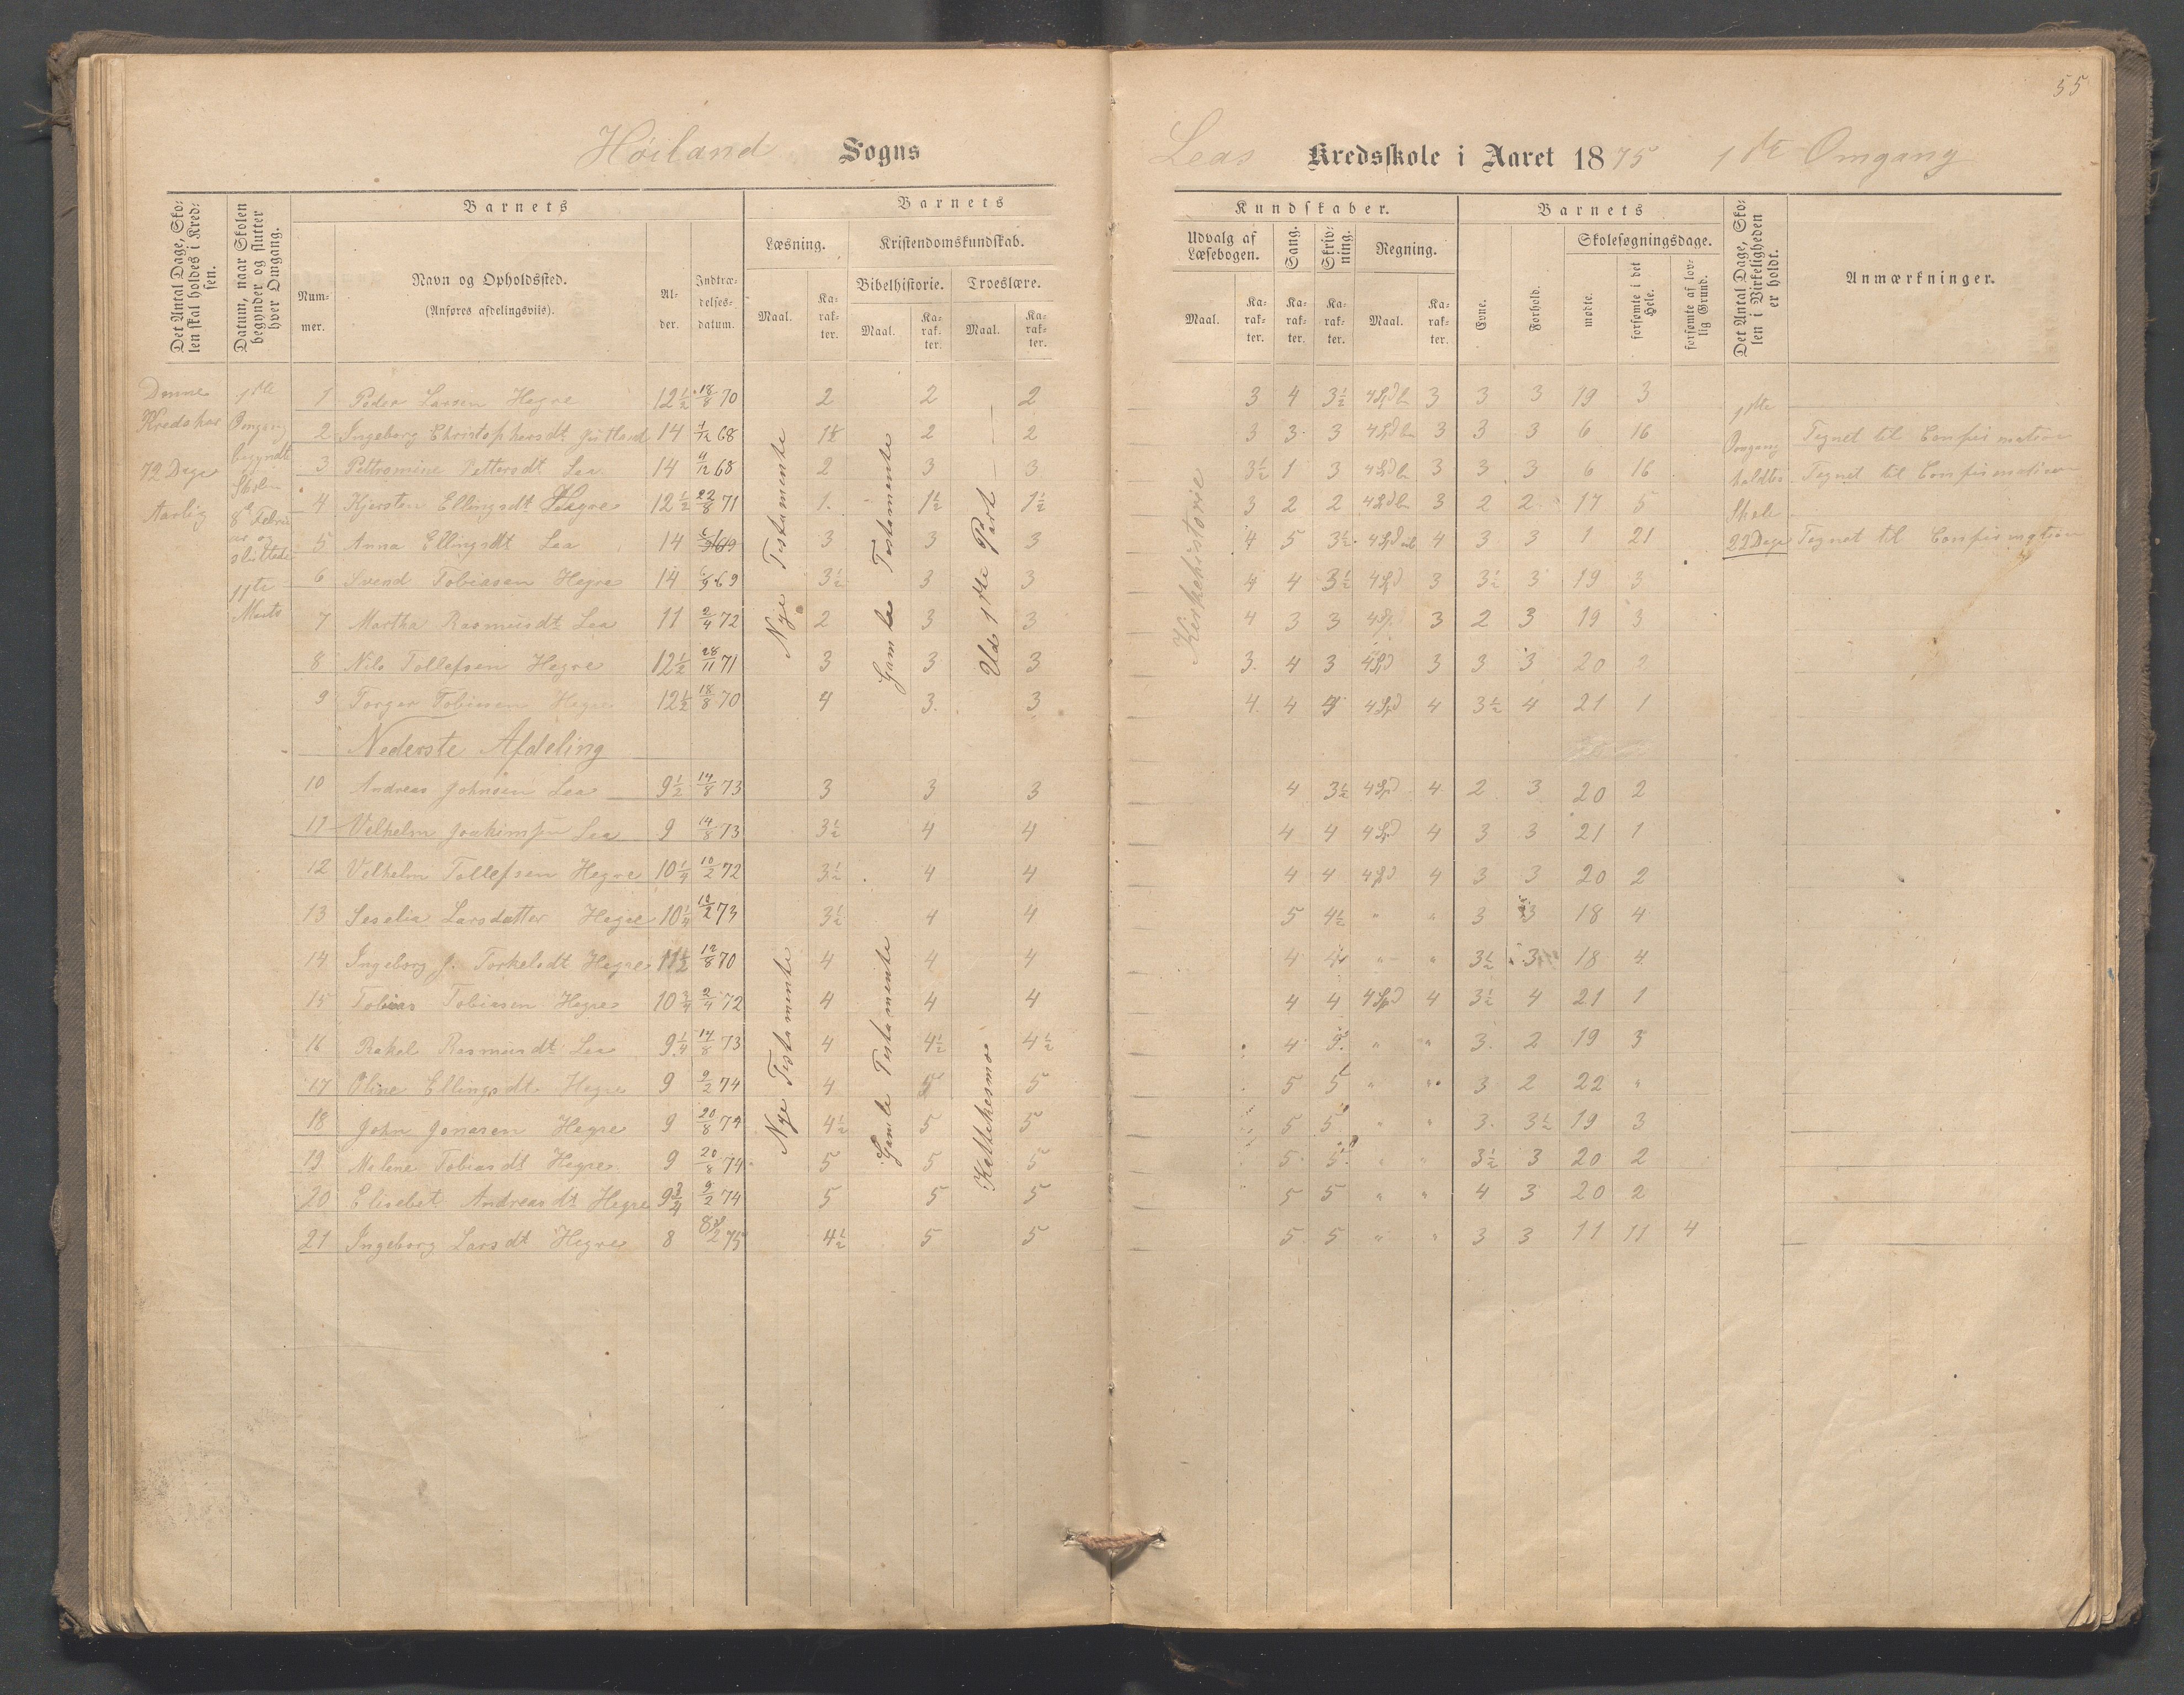 55
Høiland Sogns
Leas Kredsskole i Aaret 1875 1ste Omgang
Det Antal Dage, Skolen skal holdes i Kredsen.
Datum, naar Skolen begynder og slutter hver Omgang.
Barnets
Nummer.
Navn og Opholdssted.
(Anføres afdelingsviis).
Alder.
Indtrædelsesdatum.
Barnets
Læsning.
Maal.
Karakter.
Kristendomskundskab.
Bibelhistorie.
Maal.
Karakter.
Troeslære.
Maal.
Karakter.
Kundskaber.
Udvalg af Læsebogen.
Maal.
Karakter.
Sang.
Karakter.
Skrivning.
Karakter.
Regning.
Maal.
Karakter.
Barnets
Evne.
Forhold.
Skolesøgningsdage.
mødte.
forsømte i det Hele.
forsømte af lovlig Grund.
Det Antal Dage, Skolen i Virkeligheden er holdt.
Anmærkninger.
Denne
Kredshar
72 Dage
Aarlig
1ste
Omgang
begyndte
Skolen
8de Februar og
sluttede
11te
Marts
Nye Testamente
Gamle Testamente
Ud 1ste Part
Kirkehistorie
1ste
Omgang
holdtes
Skole
22 Dage
1 Peder Larsen Hegre 12½ 18/8 70 2 2 2 3 4 3½ 3 3 3 19 3
2 Ingeborg Christophersdt Jutland 14 1/12 68 1½ 2 2 3 3 3 3 3 3 6 16 Tegnet til Confirmation
3 Pettromine Pettersdt Lea 14 11/12 68 2 3 3 3½ 1 3 3 3 3 6 16 Tegnet til Confirmation
4 Kjersten Ellingsdt Hegre 12½ 22/8 71 1. 1½ 1½ 3 2 2 3 2 2 17 5
5 Anna Ellingsdt Lea 14 3 3 3 4 5 3½ 4 3 3 1 21 Tegnet til Confirmation
6 Svend Tobiasen Hegre 14 6/9 69 3½ 3 3 4 4 3½ 3 3½ 3 19 3
7 Martha Rasmusdt Lea 11 2/4 72 2 3 3 4 3 3 3 2 3 19 3
8 Nils Tollefsen Hegre 12½ 28/11 71 3 3 3 3. 4 3 3 3 3 20 2
9 Torger Tobiasen Hegre 12½ 18/8 70 4 3. 3 4. 4 4 3½ 4 21 1
Nederste Afdeling
10 Andreas Johnsen Lea 9½ 14/8 73 3 3 3 4 3½ 4 2 3 20 2
11 Velhelm Joakimsen Lea 9 14/8 73 3½ 4 4 4 4 4 3 3 21 1
12 Velhelm Tollefsen Hegre 10¼ 10/2 72 3½ 4 4 4 4 4 3 3 20 2
13 Seselia Larsdatter Hegre 10¼ 73 3½ 4 4 5 4½ " " 3 3 18 4
14 Ingeborg J. Torkelsdt Hegre 11½ 12/8 70 4 4 4 4 4 " " 3½ 3 18 4
15 Tobias Tobiasen Hegre 10¾ 2/4 72 4 4 4 4 4 4 3½ 4 21 1
16 Rakel Rasmusdt Lea 9¼ 14/8 73 4 4½ 4½ 4 " " 3. 2 19 3
17 Oline Ellingsdt Hegre 9 9/2 74 4 5 5 5 5 " " 3 2 22 "
18 John Jonasen Hegre 9 20/8 74 4½ 5 5 5 5 " " 3. 3½ 19 3
19 Malene Tobiasdt Hegre 9 20/8 74 5 5 5 5 5 " " 3½ 3 20 2
20 Elisebet Andreasdt Hegre 9¾ 9/2 74 5 5 5 5 5 " " 4 3 20 2
21 Ingeborg Larsdt Hegre 8 8/2 75 4½ 5 5 5 5 " " 3 3 11 11 4
Nye Testamente
Gamle Testamente